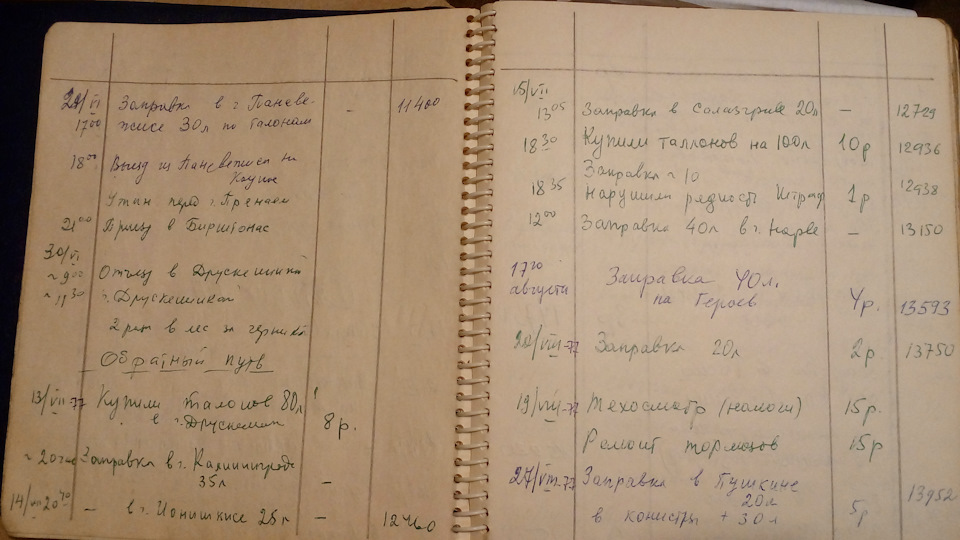 29/VI Заправка в г. Паневе- - 11400
17⁰⁰ жисе 30л по талонам
18⁰⁰ Выезд из Паневежиса на
Каунас
Ужин перед г. Пренаем
21⁰⁰ Приезд в Бирштонас
30/VI
~ 9⁰⁰ Отъезд в Друскеники
~ 11³⁰ г. Друскеники
2 раза в лес за черникой
Обратный путь
13/VII-77 Купили талонов 80л
в г. Друскеники 8р.
~ 20 час Заправка в г. Калининграде
35л -
14/VII 20⁴⁰ - в г. Ионишкисе 25л - 12460
15/VII
13⁰⁵ Заправка в Салацгриве 20л - 12729
18³⁰ Купили таллонов на 100л 10р 12936
Заправка
18³⁵ нарушили рядность Штраф 1р 12938
12⁰⁰ Заправка 40л в г. Нарве - 13150
17²⁰
августа Заправка 40л.
на Героев 4р. 13593
20/VIII-77 Заправка 20л 2р 13750
19/VIII-77 Техосмотр (налоги) 15р.
Ремонт тормозов 15р
27/VIII-77 Заправка в Пушкине
20л 13952
в канистры + 30л 5р